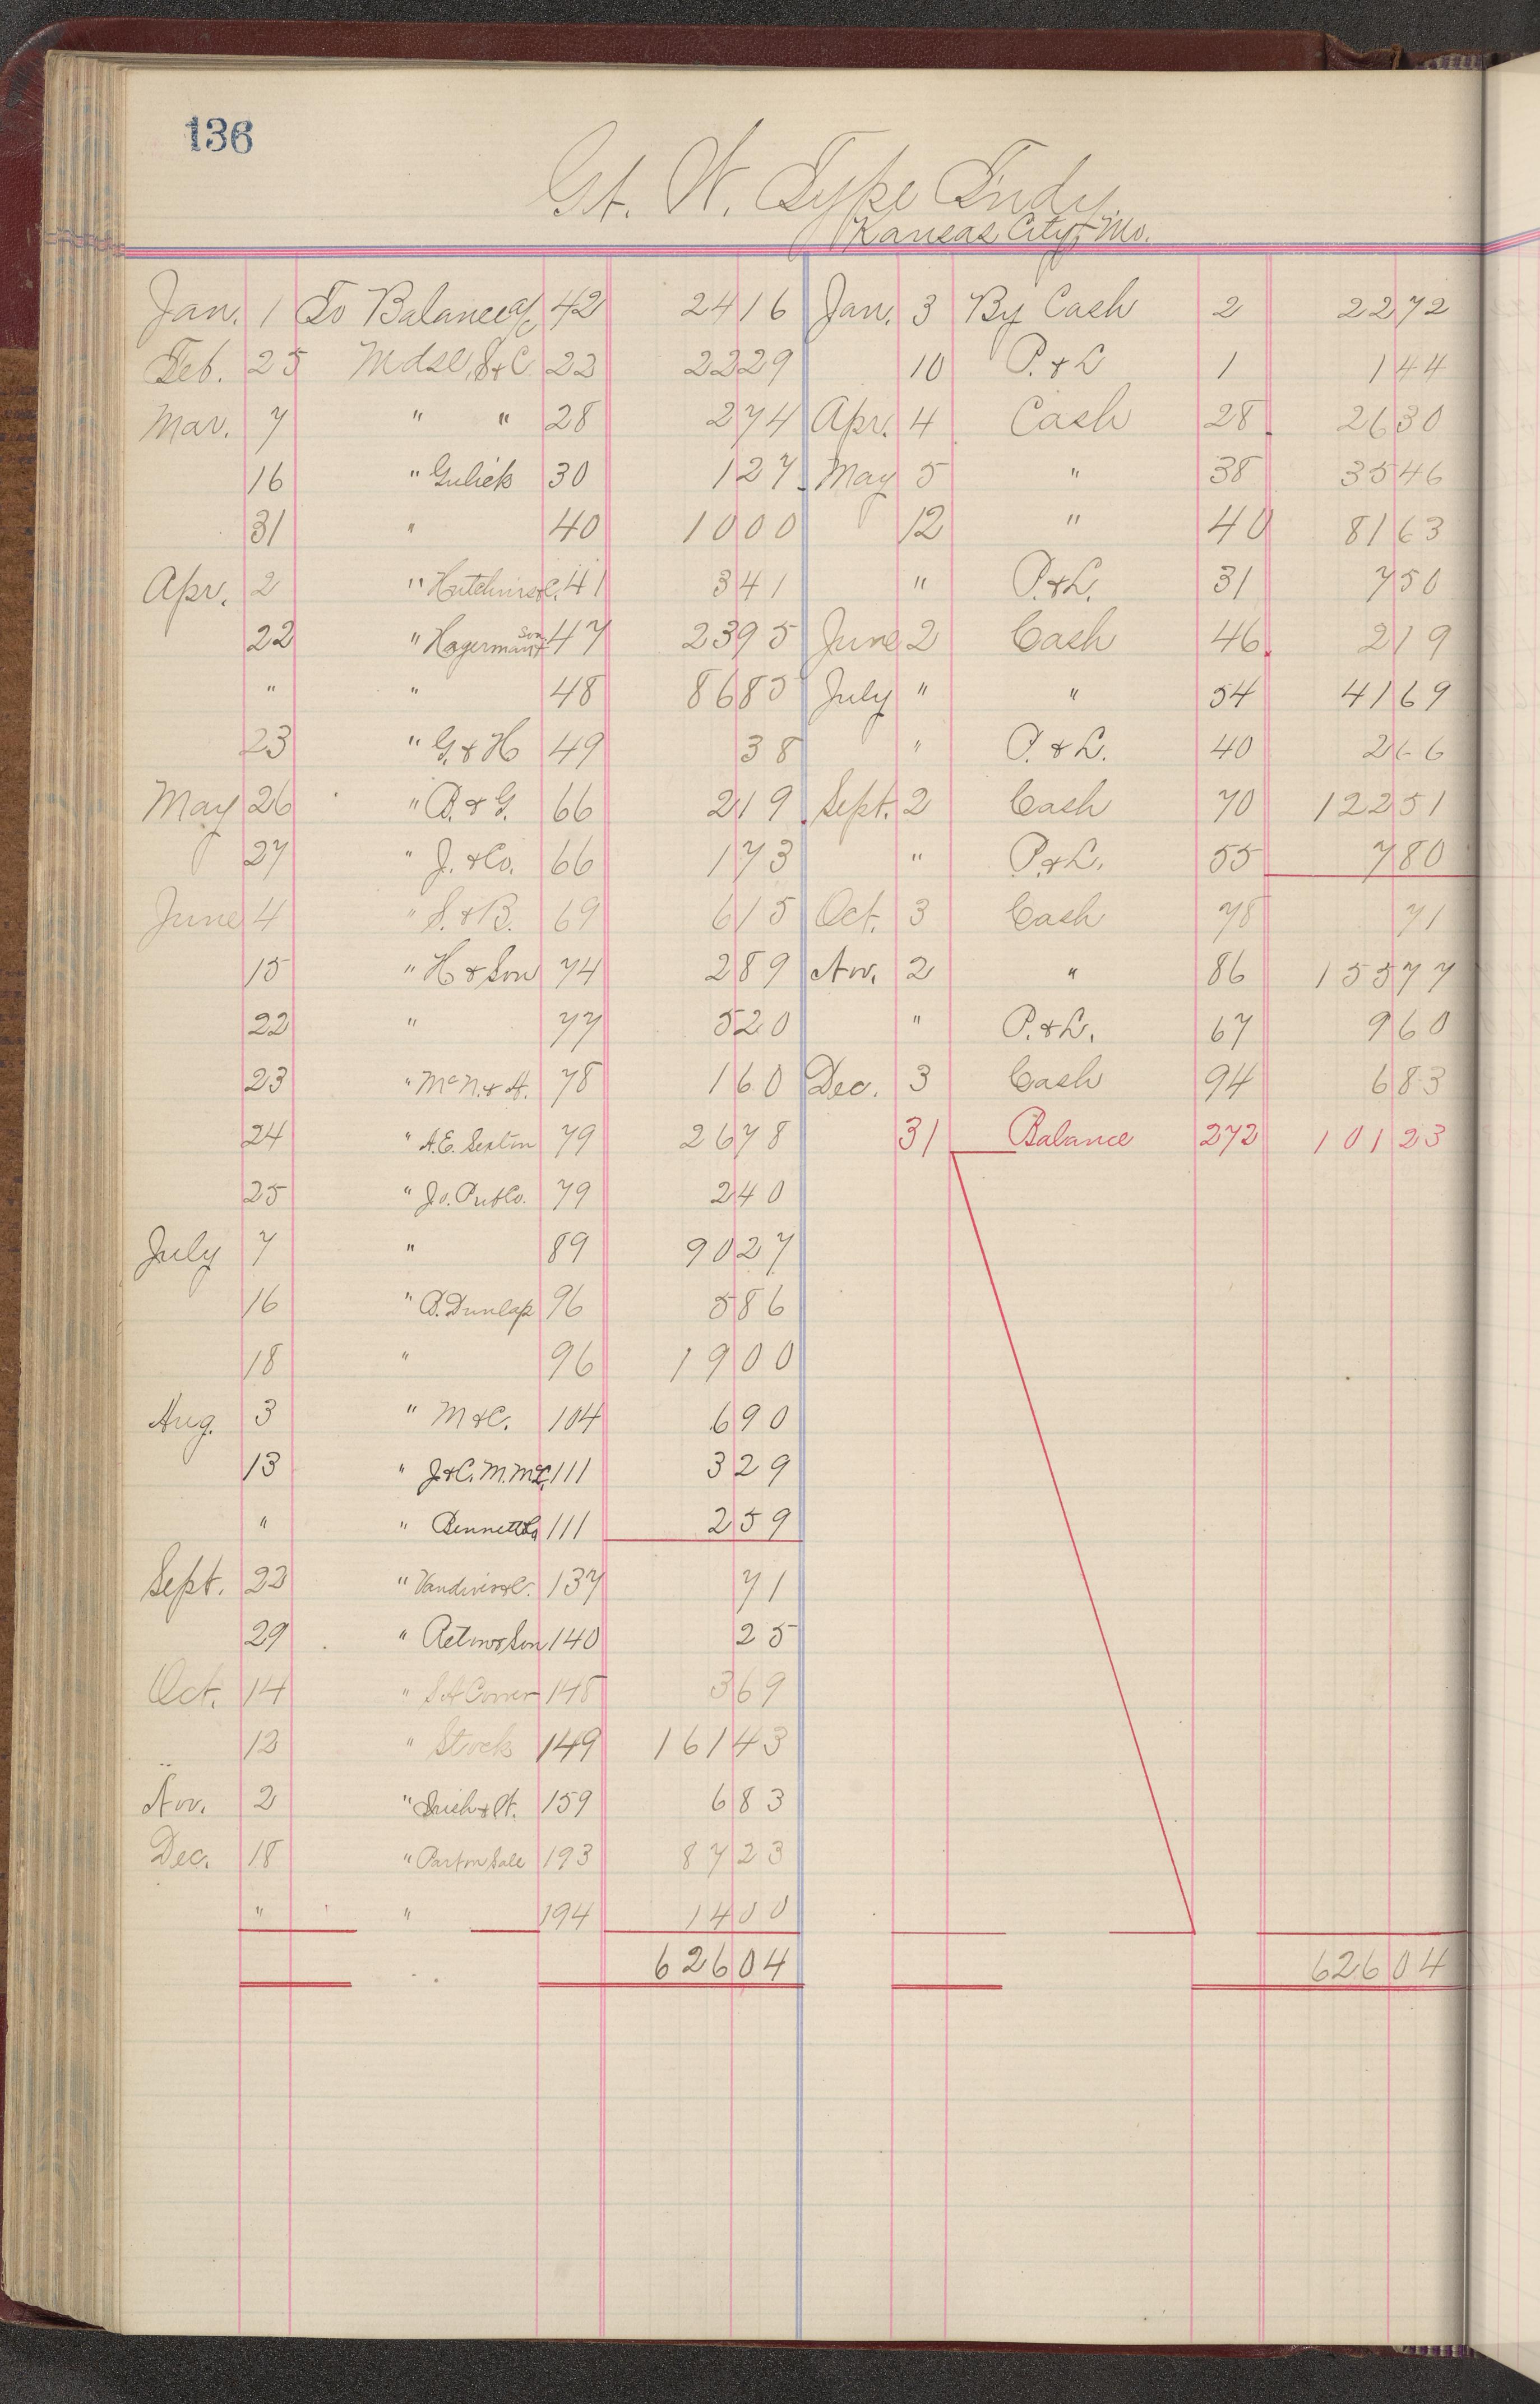 136
Gt. W. Type Fndy.
Kansas City, Mo.
Jan. 1 To Balance a/c 42 24 16 Jan. 3 By Cash 2 22 72
Feb. 25 Mdse, S & C 22 22 29 10 P. & L 1 1 44
Mar. 7 " " 28 2 74 Apr. 4 Cash 28 26 30
16 " Gulick 30 1 27 May 5 " 38 35 46
31 " 40 10 00 12 " 40 81 63
Apr. 2 " Hutchins & C. 41 3 41 " P. & L. 31 7 50
22 " Hagerman & Son 47 23 95 June 2 Cash 46 2 19
" " 48 86 85 July " " 54 41 69
23 " G. & H 49 38 " P. & L. 40 2 66
May 26 " B. & G. 66 2 19 Sept. 2 Cash 70 122 51
27 " J. & Co. 66 1 73 " P. & L. 55 7 80
June 4 " S. & B. 69 6 15 Oct. 3 Cash 78 71
15 " H & Son 74 2 89 Nov. 2 " 86 155 77
22 " 77 5 20 " P. & L. 67 9 60
23 " McN. & A. 78 1 60 Dec. 3 Cash 94 6 83
24 " A.E. Sexton 79 26 78 31 Balance 272 101 23
25 " Jo. Put Co. 79 2 40
July 7 " 89 90 27
16 " B. Dunlap 96 5 86
18 " 96 19 00
Aug. 3 " M & C. 104 6 90
13 " J. & C. M. McL. 111 3 29
" " Bennett 111 2 59
Sept. 22 " 137 71
29 " & Son 140 25
Oct. 14 " 148 3 69
13 " Stock 149 161 43
Nov. 2 " 159 6 83
Dec. 18 " Parton Sale 193 87 23
" " 194 14 00
626 04 626 04